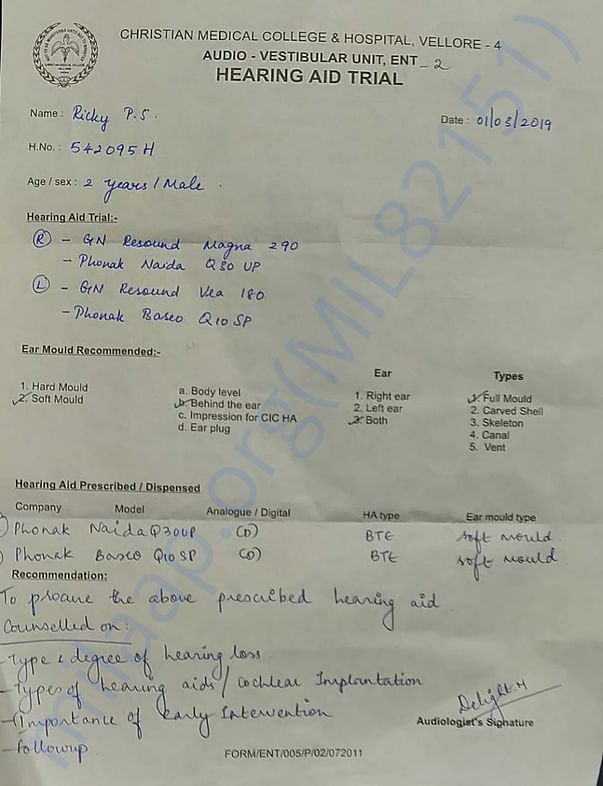 CHRISTIAN MEDICAL COLLEGE & HOSPITAL, VELLORE - 4
AUDIO - VESTIBULAR UNIT, ENT - 2
HEARING AID TRIAL
Name : Ricky P.S.
Date : 01/03/2019
H.No. : 542095 H
Age / sex : 2 years / Male .
Hearing Aid Trial:-
R - GN Resound Magna 290
- Phonak Naida Q30 UP
L - GN Resound Vea 180
- Phonak Baseo Q10 SP
Ear Mould Recommended:-
Ear Types
1. Hard Mould a. Body level 1. Right ear 1. Full Mould
2. Soft Mould b. Behind the ear 2. Left ear 2. Carved Shell
c. Impression for CIC HA 3. Both 3. Skeleton
d. Ear plug 4. Canal
5. Vent
Hearing Aid Prescribed / Dispensed
Company Model Analogue / Digital HA type Ear mould type
Phonak Naida Q30UP (D) BTE soft mould
Phonak Baseo Q10 SP (D) BTE soft mould
Recommendation:
To procure the above prescribed hearing aid
Counselled on:
- Type & degree of hearing loss
- Types of hearing aids / Cochlear Implantation
- Importance of early Intervention
- Followup
Delight.M
Audiologist's Signature
FORM/ENT/005/P/02/072011
milaap.org(MIL82151)